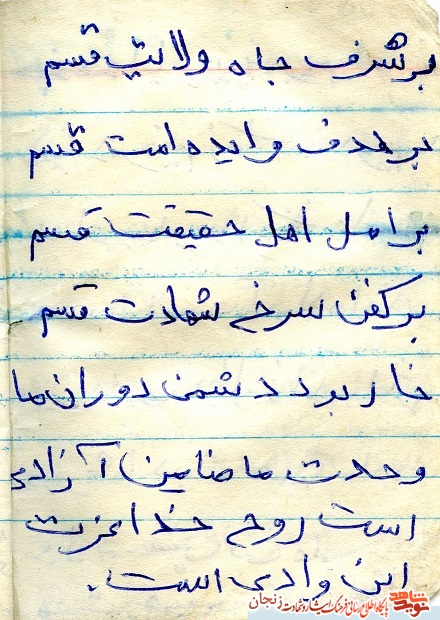 بر شرف جاه ولایت قسم
بر هدف و ایده امت قسم
بر امل اهل حقیقت قسم
بر کفن سرخ شهادت قسم
خار بود دشمن دوران ما
وحدت ما ضامن آزادی
است روح خدا عزت
این وادی است.
نوید شاهد پایگاه اطلاع رسانی فرهنگ ایثار و شهادت زنجان